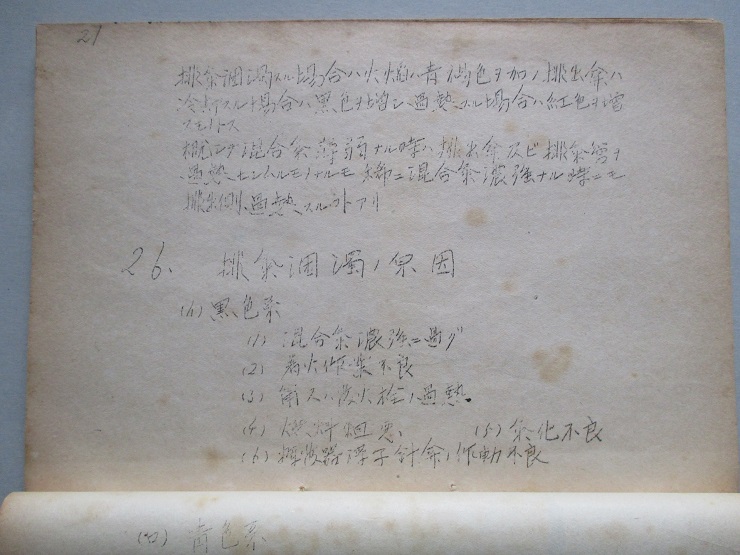 21
排気涸濁スル場合ハ火焔ハ青褐色ヲ加ノ排出傘ハ
冷却スル場合ハ黒色ヲ増シ過熱スル場合ハ紅色ヲ増
スモノトス
概シテ混合気薄弱ナル時ハ排出傘及ビ排気管ヲ
過熱センムルモノナルモ 稀ニ混合気濃強ナル時ニモ
排出側過熱スルトアリ
26. 排気涸濁ノ原因
(イ) 黒色系
(1) 混合気濃強ニ過グ
(2) 着火作業不良
(3) 又ハ発火栓ノ過熱
(4) 燃料粗悪 (5) 気化不良
(6) 浮子針弁ノ作動不良
(ロ) 青色系